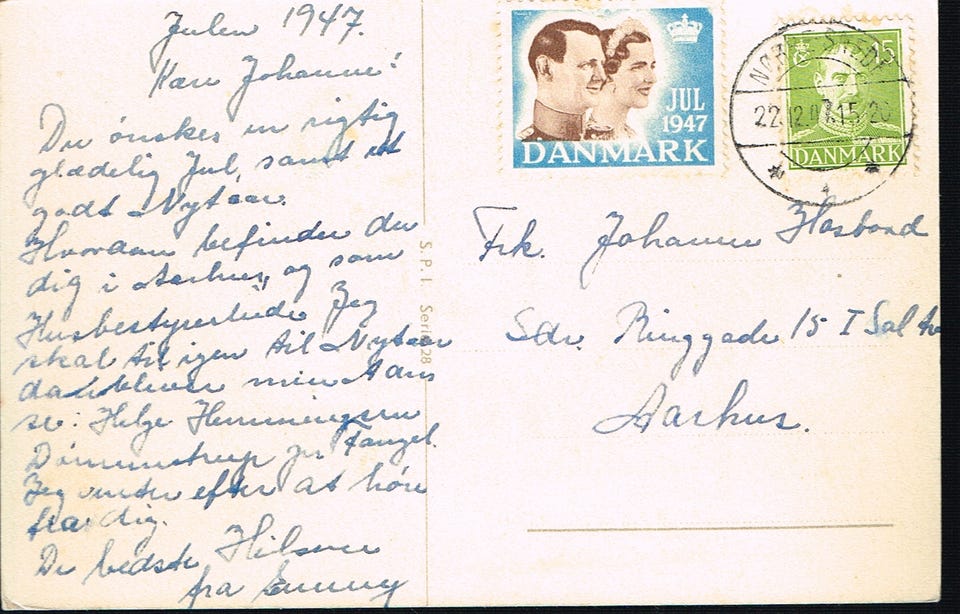 Julen 1947.
Kære Johanne!
Du ønskes en rigtig
glædelig Jul, samt et
godt Nytaar.
Hvordan befinder du
dig i Aarhus, og som
Husbestyrerinde Jeg
skal til igen til Nytaar
da bliver min Adres
se: Helge Hemmingsen
pr. Fangel.
Jeg venter efter at høre
fra dig.
De bedste Hilsener
fra Emmy
S.P.I. Serie 28
JUL
1947
DANMARK
15
DANMARK
22.12.47.15-20
Frk. Johanne Hosbond
Sdr. Ringgade 15 I Sal tv
Aarhus.